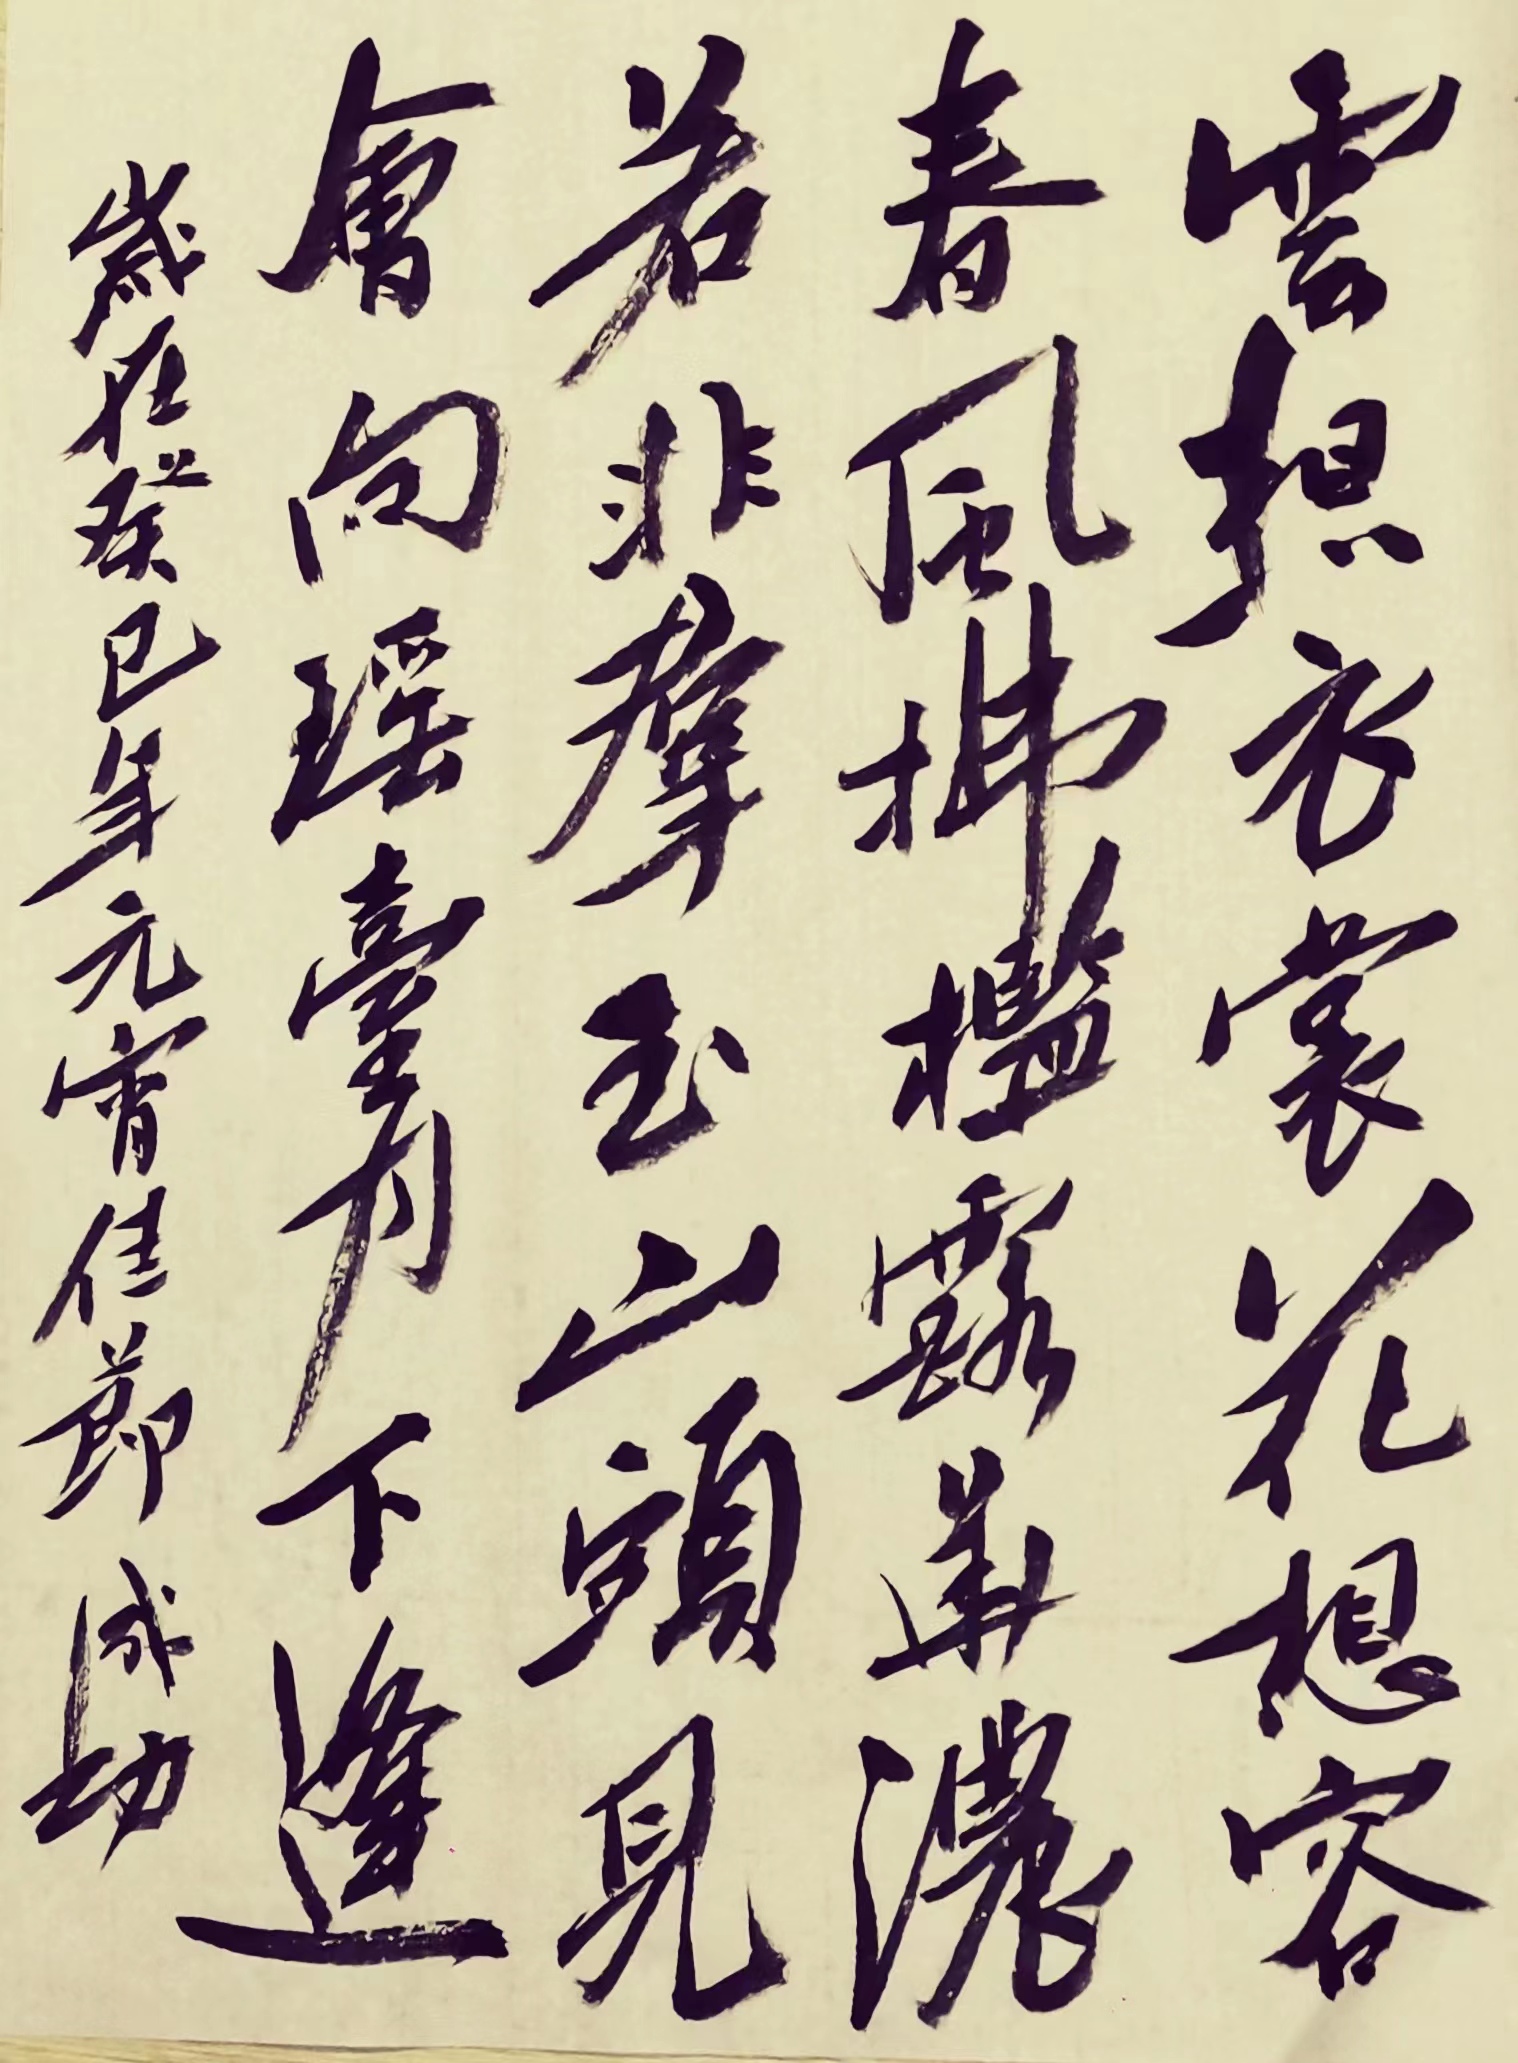 雲想衣裳花想容
春風拂檻露華濃
若非羣玉山頭見
會向瑶臺月下逢
歲在癸巳年元宵佳節 成功